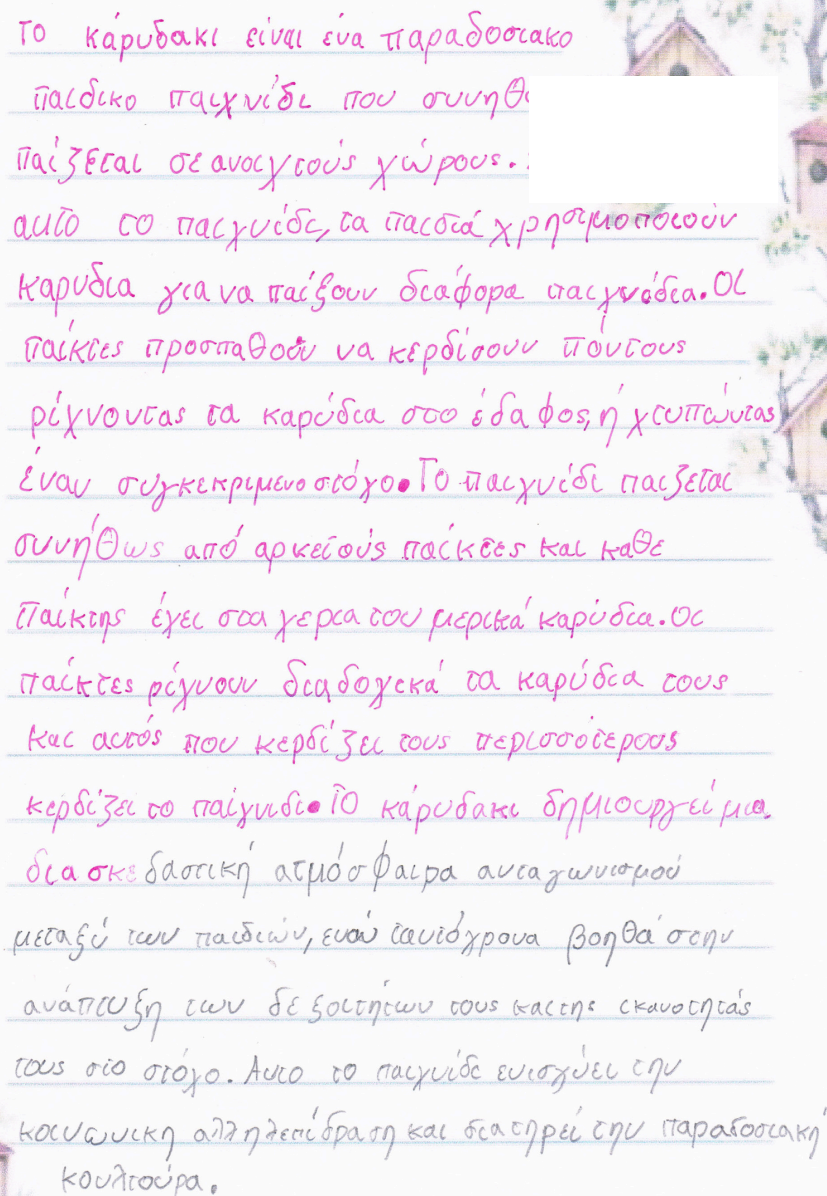 το κάρυδακι είναι ένα παραδοσιακο
παιδικο παιχνίδι που
παίζεται σε ανοιχτούς χώρους.
αυτο το παιχνίδι, τα παιδιά χρησιμοποιούν
καρυδια για να παίξουν διάφορα παιχνίδια. Οι
παίκτες προσπαθούν να κερδίσουν πόντους
ρίχνοντας τα καρύδια στο έδαφος, ή χτυπώντας
έναν συγκεκριμενο στόχο. Το παιχνίδι παιζεται
συνήθως από αρκετούς παίκτες και καθε
παίκτης έχει στα χερια του μερικά καρύδια. οι
παίκτες ρίχνουν διαδοχικά τα καρύδια τους
και αυτός που κερδίζει τους περισσότερους
κερδίζει το παίχνιδι. Το κάρυδακι δημιουργεί μια
διασκεδαστική ατμόσφαιρα ανταγωνισμού
μεταξύ των παιδιών, ενώ ταυτόχρονα βοηθά στην
ανάπτυξη των δεξοιτήτων τους και της ικανοτητάς
τους στο στόχο. Αυτο το παιχνίδι ενισχύει την
κοινωνικη αλληλεπίδραση και διατηρεί την παραδοσιακή
κουλτούρα.